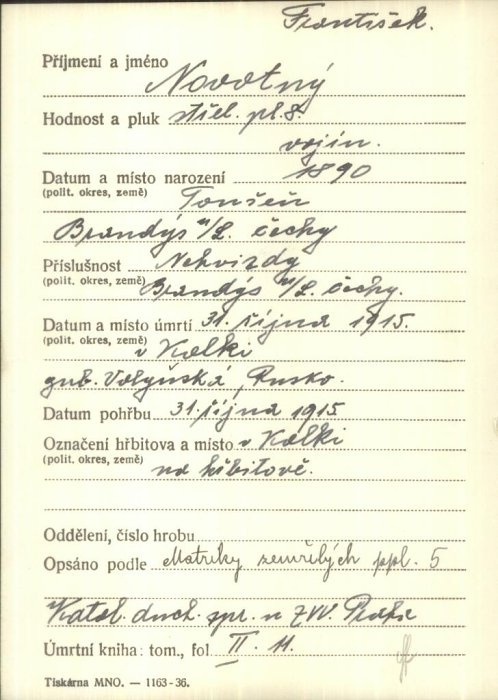 František.
Příjmení a jméno Novotný
Hodnost a pluk střel. pl. 8.
vojín.
Datum a místo narození 1890
(polit. okres, země) Toušeň
Brandýs n/L. Čechy
Příslušnost Nehvizdy
(polit. okres, země) Brandýs n/L. Čechy.
Datum a místo úmrtí 31. října 1915.
(polit. okres, země) v Kolki
gub. Volyňská, Rusko.
Datum pohřbu 31. října 1915
Označení hřbitova a místo v Kolki
(polit. okres, země) na hřbitově.
Oddělení, číslo hrobu
Opsáno podle Matriky zemřelých ppl. 5
Katol. duch. spr. u ZVV. Praha
Úmrtní kniha: tom., fol. II. 11.
Tiskárna MNO. — 1163-36.